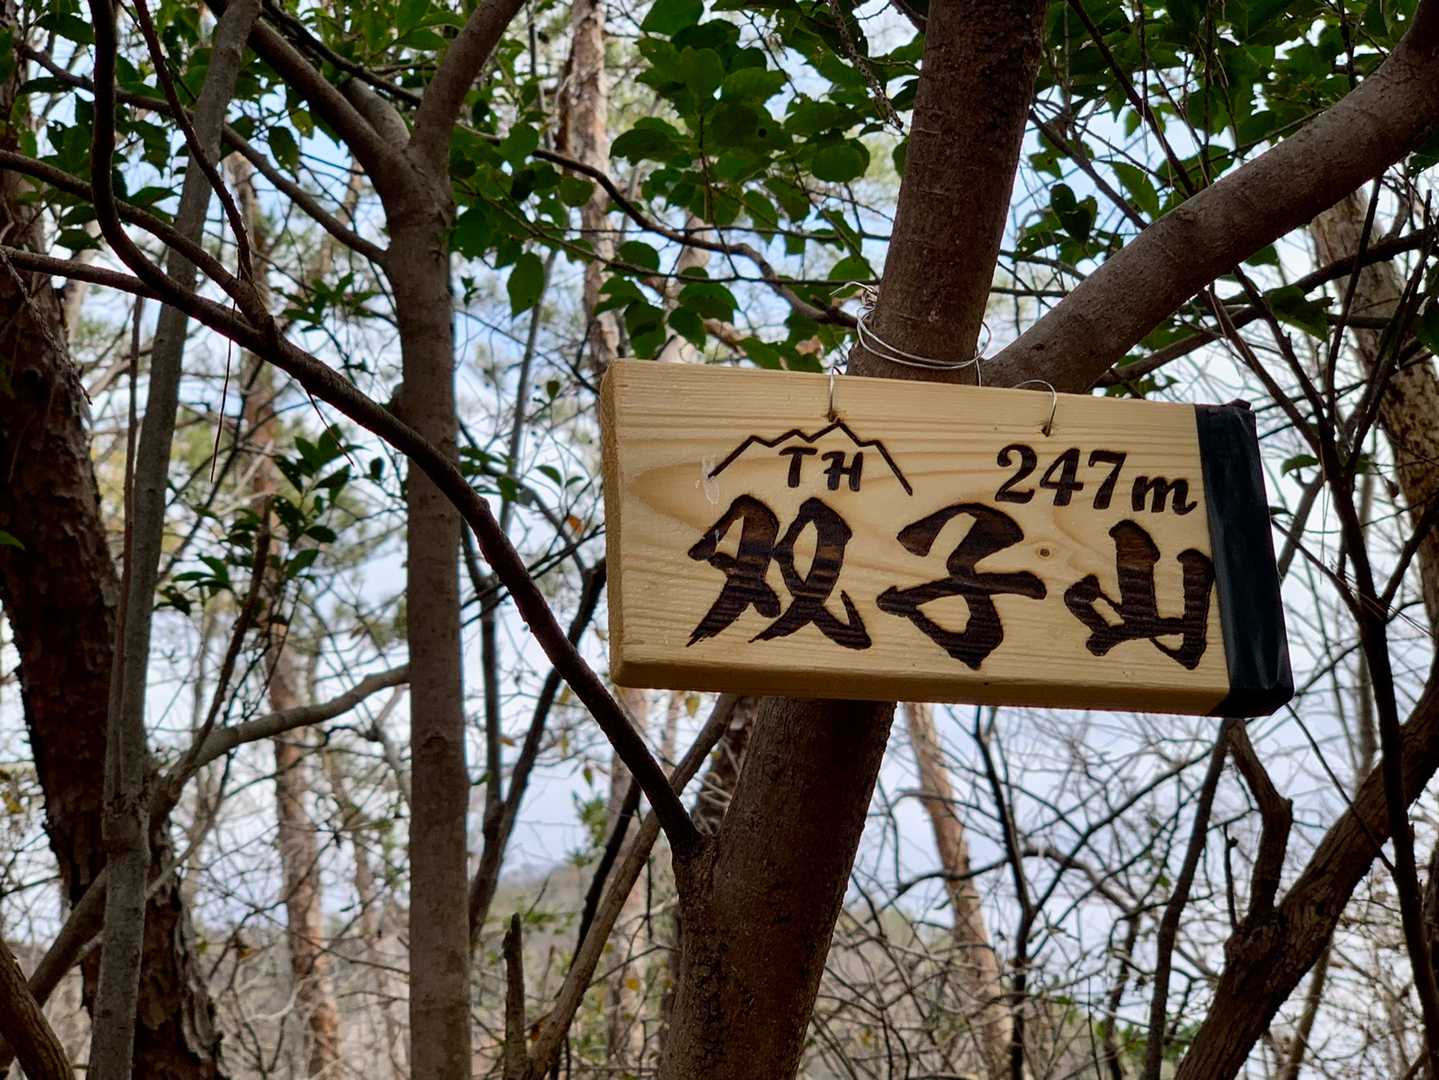 TH
247m
双子山